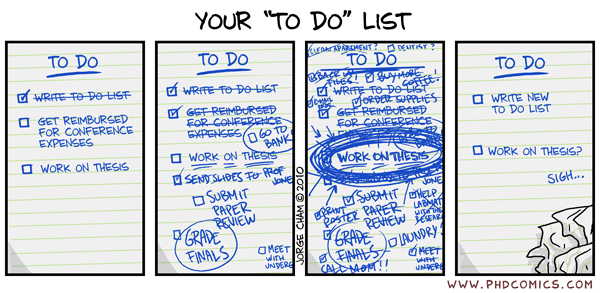 YOUR "TO DO" LIST
TO DO
WRITE TO DO LIST
GET REIMBURSED
FOR CONFERENCE
EXPENSES
WORK ON THESIS
TO DO
WRITE TO DO LIST
GET REIMBURSED
FOR CONFERENCE
EXPENSES
GO TO
BANK
WORK ON THESIS
SEND SLIDES TO PROF
JONES
SUBMIT
PAPER
REVIEW
GRADE
FINALS
MEET
WITH
UNDERG
JORGE CHAM © 2010
CLEAN APARTMENT?
DENTIST?
TO DO
BACK UP
FILES
BUY MORE
COFFEE!
WRITE TO DO LIST
ORDER SUPPLIES
GET REIMBURSED
FOR CONFERENCE
WORK ON THESIS
JONE
SUBMIT
PAPER
REVIEW
HELP
LABMAT
WITH THE
RESEAR
PRINT
POSTER
GRADE
FINALS
LAUNDRY
MEET
WITH
UNDERG
CALL MOM!!
TO DO
WRITE NEW
TO DO LIST
WORK ON THESIS?
SIGH...
WWW.PHDCOMICS.COM